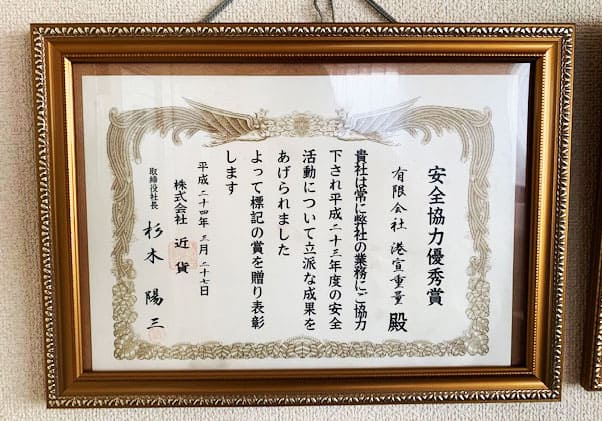 安全協力優秀賞
有限会社 港宣重量 殿
貴社は常に弊社の業務にご協力
下され平成二十三年度の安全
活動について立派な成果を
あげられました
よって標記の賞を贈り表彰
します
平成二十四年三月二十七日
株式会社 近貨
取締役社長 杉本 陽三